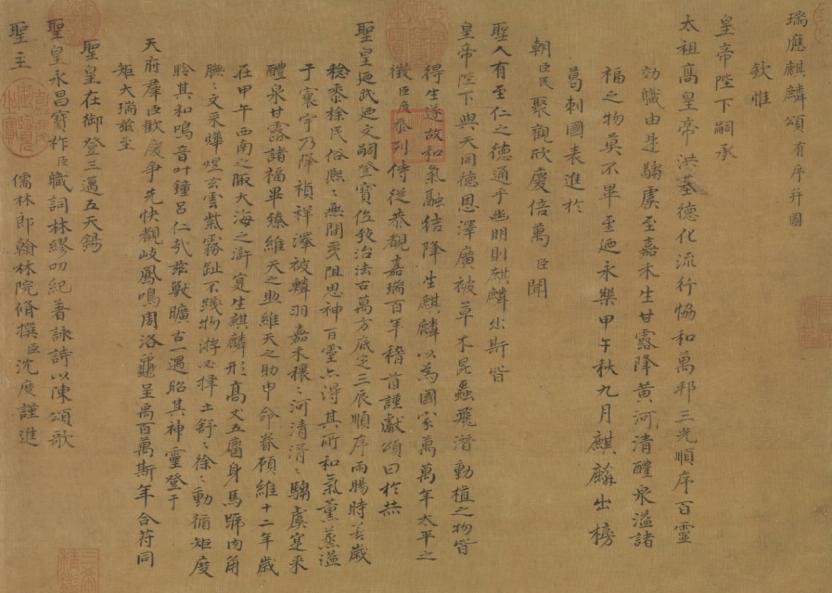 瑞應麒麟頌有序并圖
欽惟
皇帝陛下嗣承
太祖高皇帝洪基德化流行協和萬邦三光順序百靈
効職由是騶虞至嘉禾生甘露降黃河清醴泉溢諸
福之物莫不畢至迺永樂甲午秋九月麒麟出榜
葛剌國表進於
朝臣民聚觀欣慶倍萬臣聞
聖人有至仁之德通乎幽明則麒麟出斯皆
皇帝陛下與天同德恩澤廣被草木昆蟲飛潛動植之物皆
得生遂故和氣融結降生麒麟以為國家萬萬年太平之
徵臣度忝列侍從恭覩嘉瑞百年稽首謹獻頌曰於赫
聖皇迺武迺文嗣登寶位致治法古萬方底定三辰順序雨暘時若歲
稔黍稌民俗熙〻無間阻思神百靈亦得其所和氣薰蒸溢
于寰宇乃降禎祥澤被鱗羽嘉禾穰〻河清湑〻騶虞寔來
醴泉甘露諸福畢臻維天之與維天之助申命眷顧維十二年歲
在甲午西南之陬大海之滸實生麒麟形高丈五麕身馬蹄肉角
膴〻文采燁煜玄雲紫霧趾不踐物游必擇土舒〻徐〻動循矩度
聆其和鳴音叶鐘呂仁哉兹獸曠古一遇昭其神靈登于
天府羣臣歡慶爭先快覩岐鳳鳴周洛龜呈禹百萬斯年合符同
矩大瑞至
聖皇在御登三邁五天錫
聖皇永昌寶祚臣職詞林繆叨紀著詠詩以陳頌歌
聖主 儒林郎翰林院脩撰臣沈度謹進